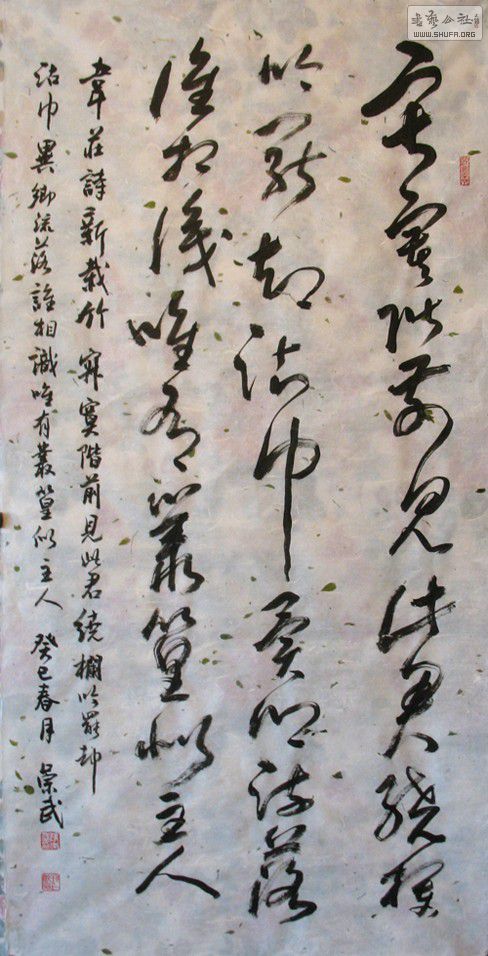 寂寞階前見此君繞欄
吟罷却沾巾異鄉流落
誰相識唯有叢篁似主人
韋莊詩新栽竹 寂寞階前見此君繞欄吟罷却
沾巾異鄉流落誰相識唯有叢篁似主人 癸巳春月 武
書藝公社
WWW.SHUFA.ORG